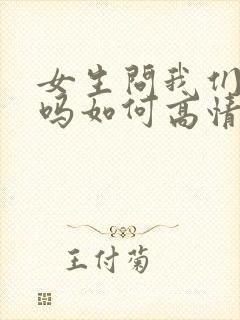 女生問我们
吗如何高情
王付菊